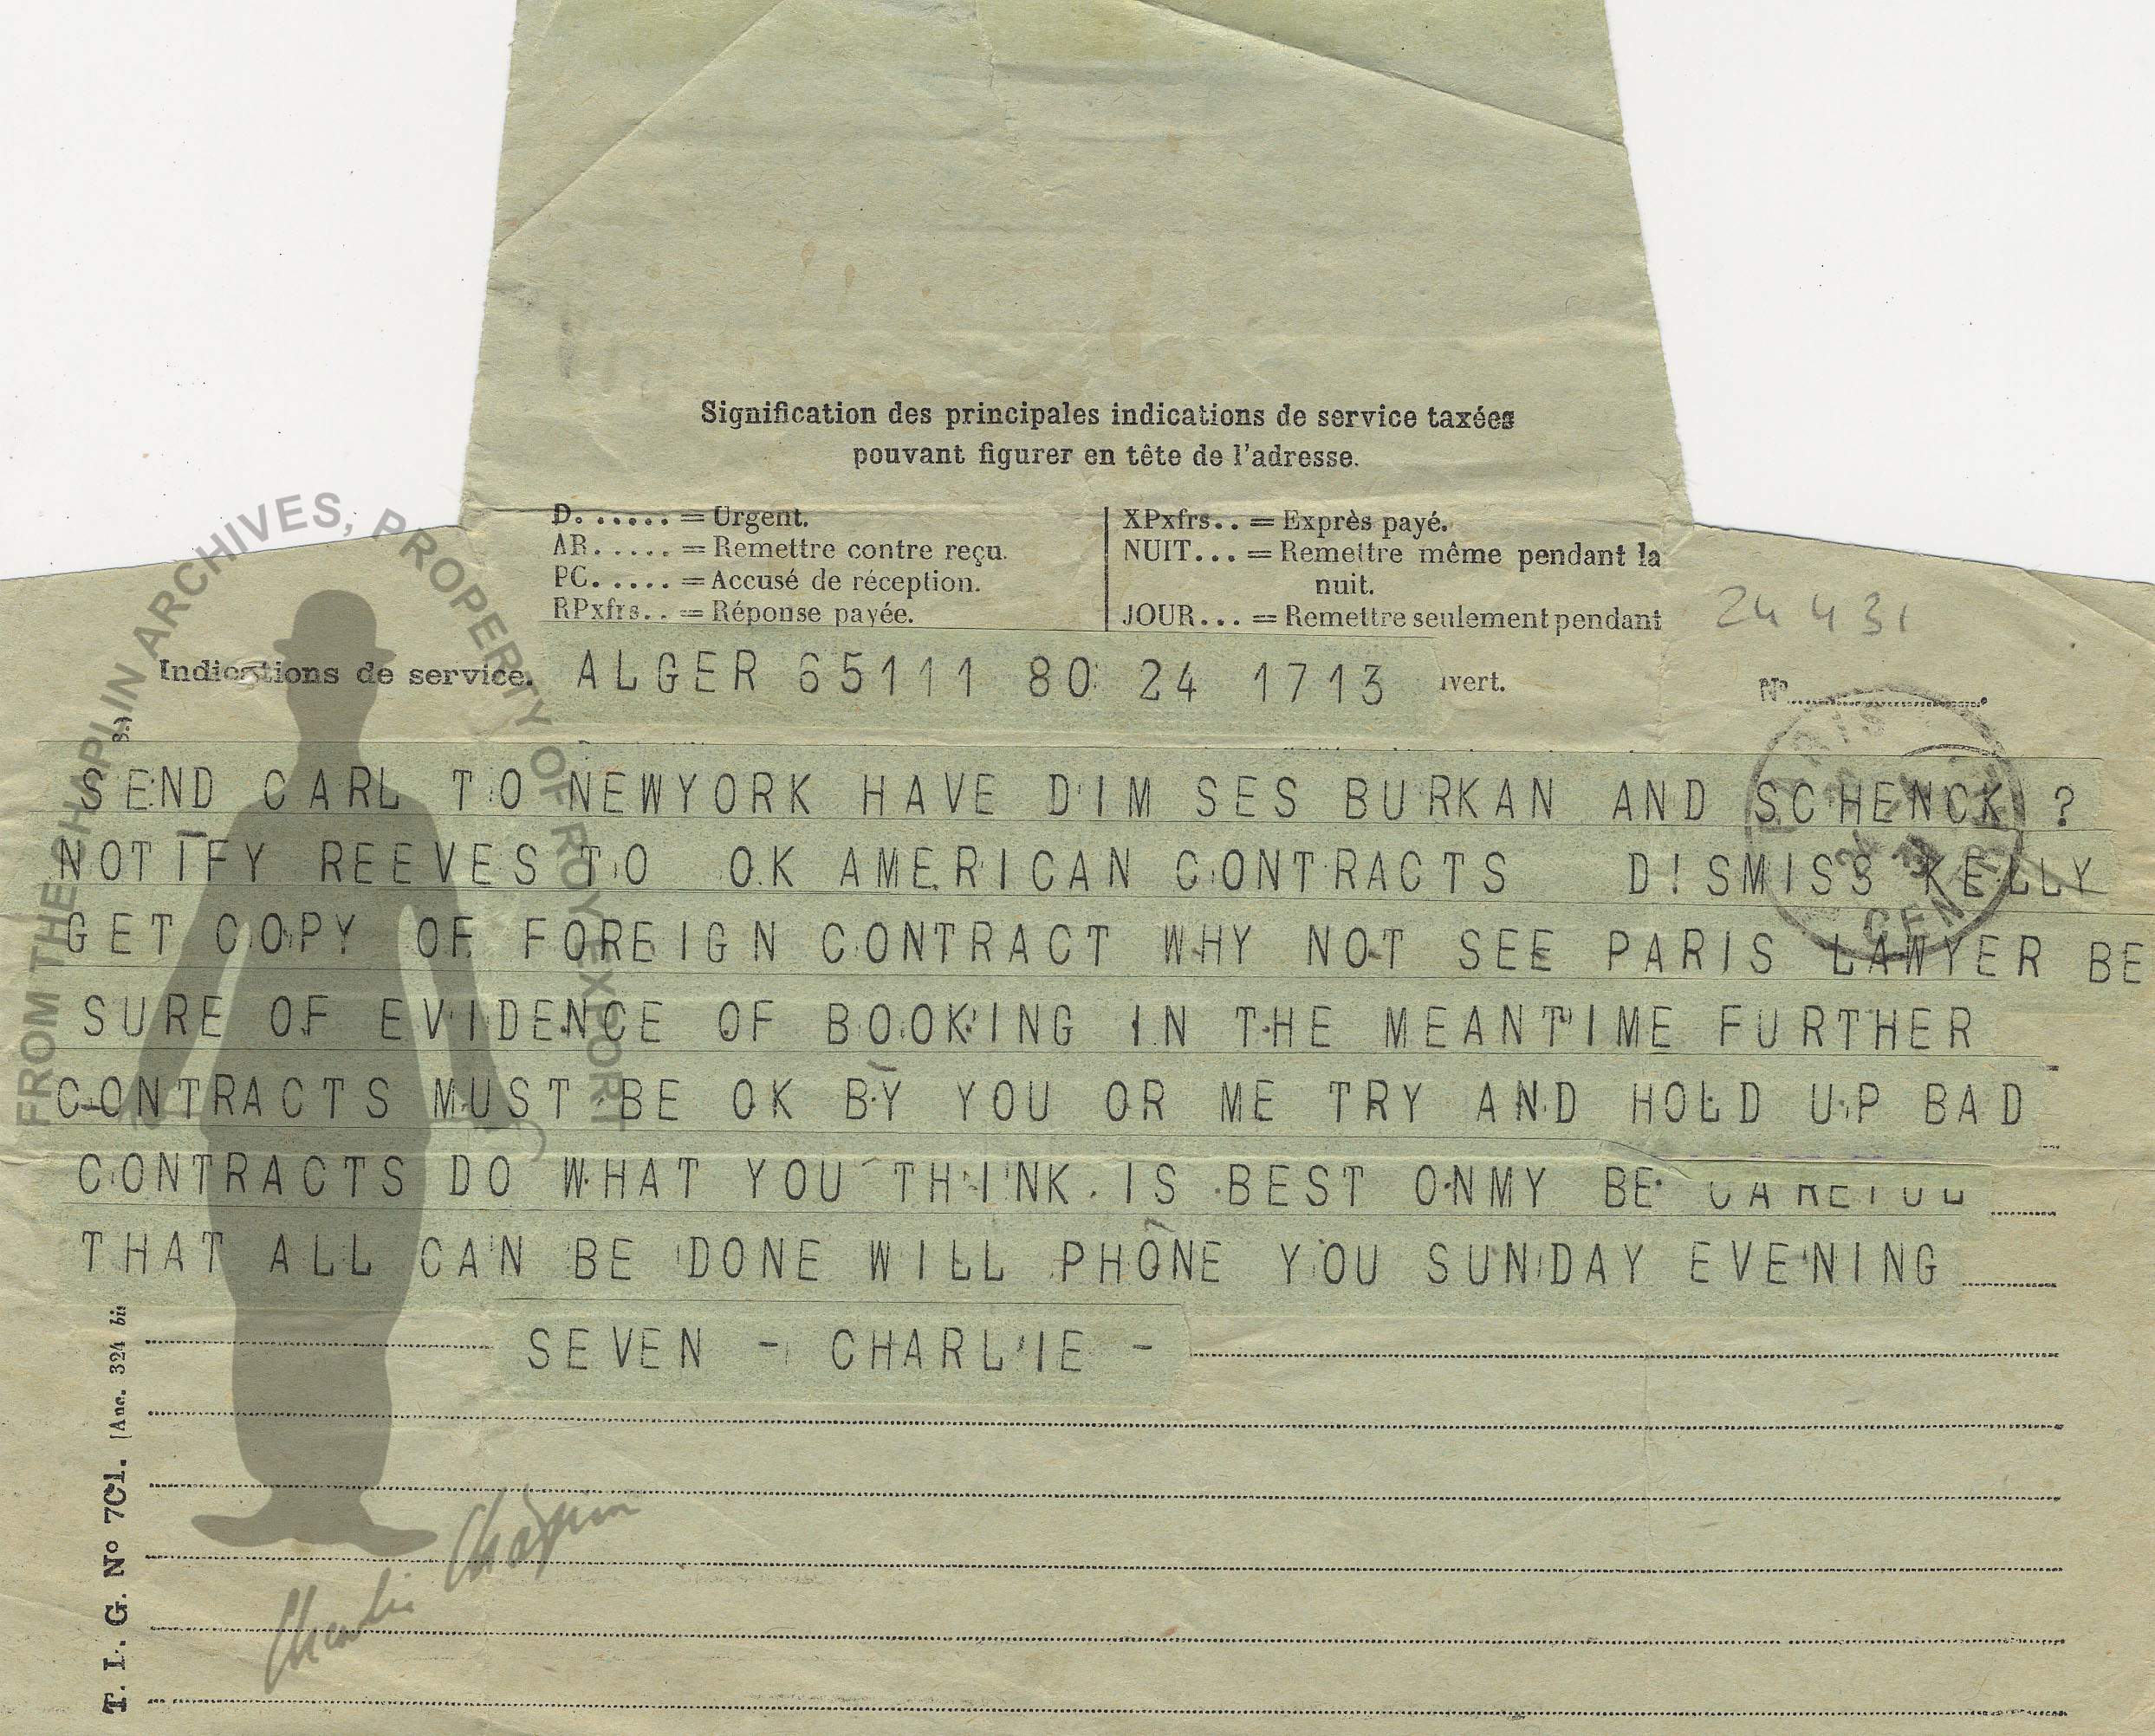 Signification des principales indications de service taxées
pouvant figurer en tête de l'adresse.
D. ...... = Urgent.
AR. ..... = Remettre contre reçu.
PC. ..... = Accusé de réception.
RPxfrs. . = Réponse payée.
XPxfrs. . = Exprès payé.
NUIT... = Remettre même pendant la
nuit.
JOUR... = Remettre seulement pendant
24 4 31
Indications de service. ALGER 65111 80 24 1713 vert. N°
SEND CARL TO NEWYORK HAVE DIM SES BURKAN AND SCHENCK ?
NOTIFY REEVES TO OK AMERICAN CONTRACTS DISMISS KELLY
GET COPY OF FOREIGN CONTRACT WHY NOT SEE PARIS LAWYER BE
SURE OF EVIDENCE OF BOOKING IN THE MEANTIME FURTHER
CONTRACTS MUST BE OK BY YOU OR ME TRY AND HOLD UP BAD
CONTRACTS DO WHAT YOU THINK IS BEST ONMY BE CAREFUL
THAT ALL CAN BE DONE WILL PHONE YOU SUNDAY EVENING
SEVEN - CHARLIE -
PARIS
CENTRAL
T. I. G. N° 701. [Anc. 324 bis
FROM THE CHAPLIN ARCHIVES, PROPERTY OF ROY EXPORT
Charlie Chaplin